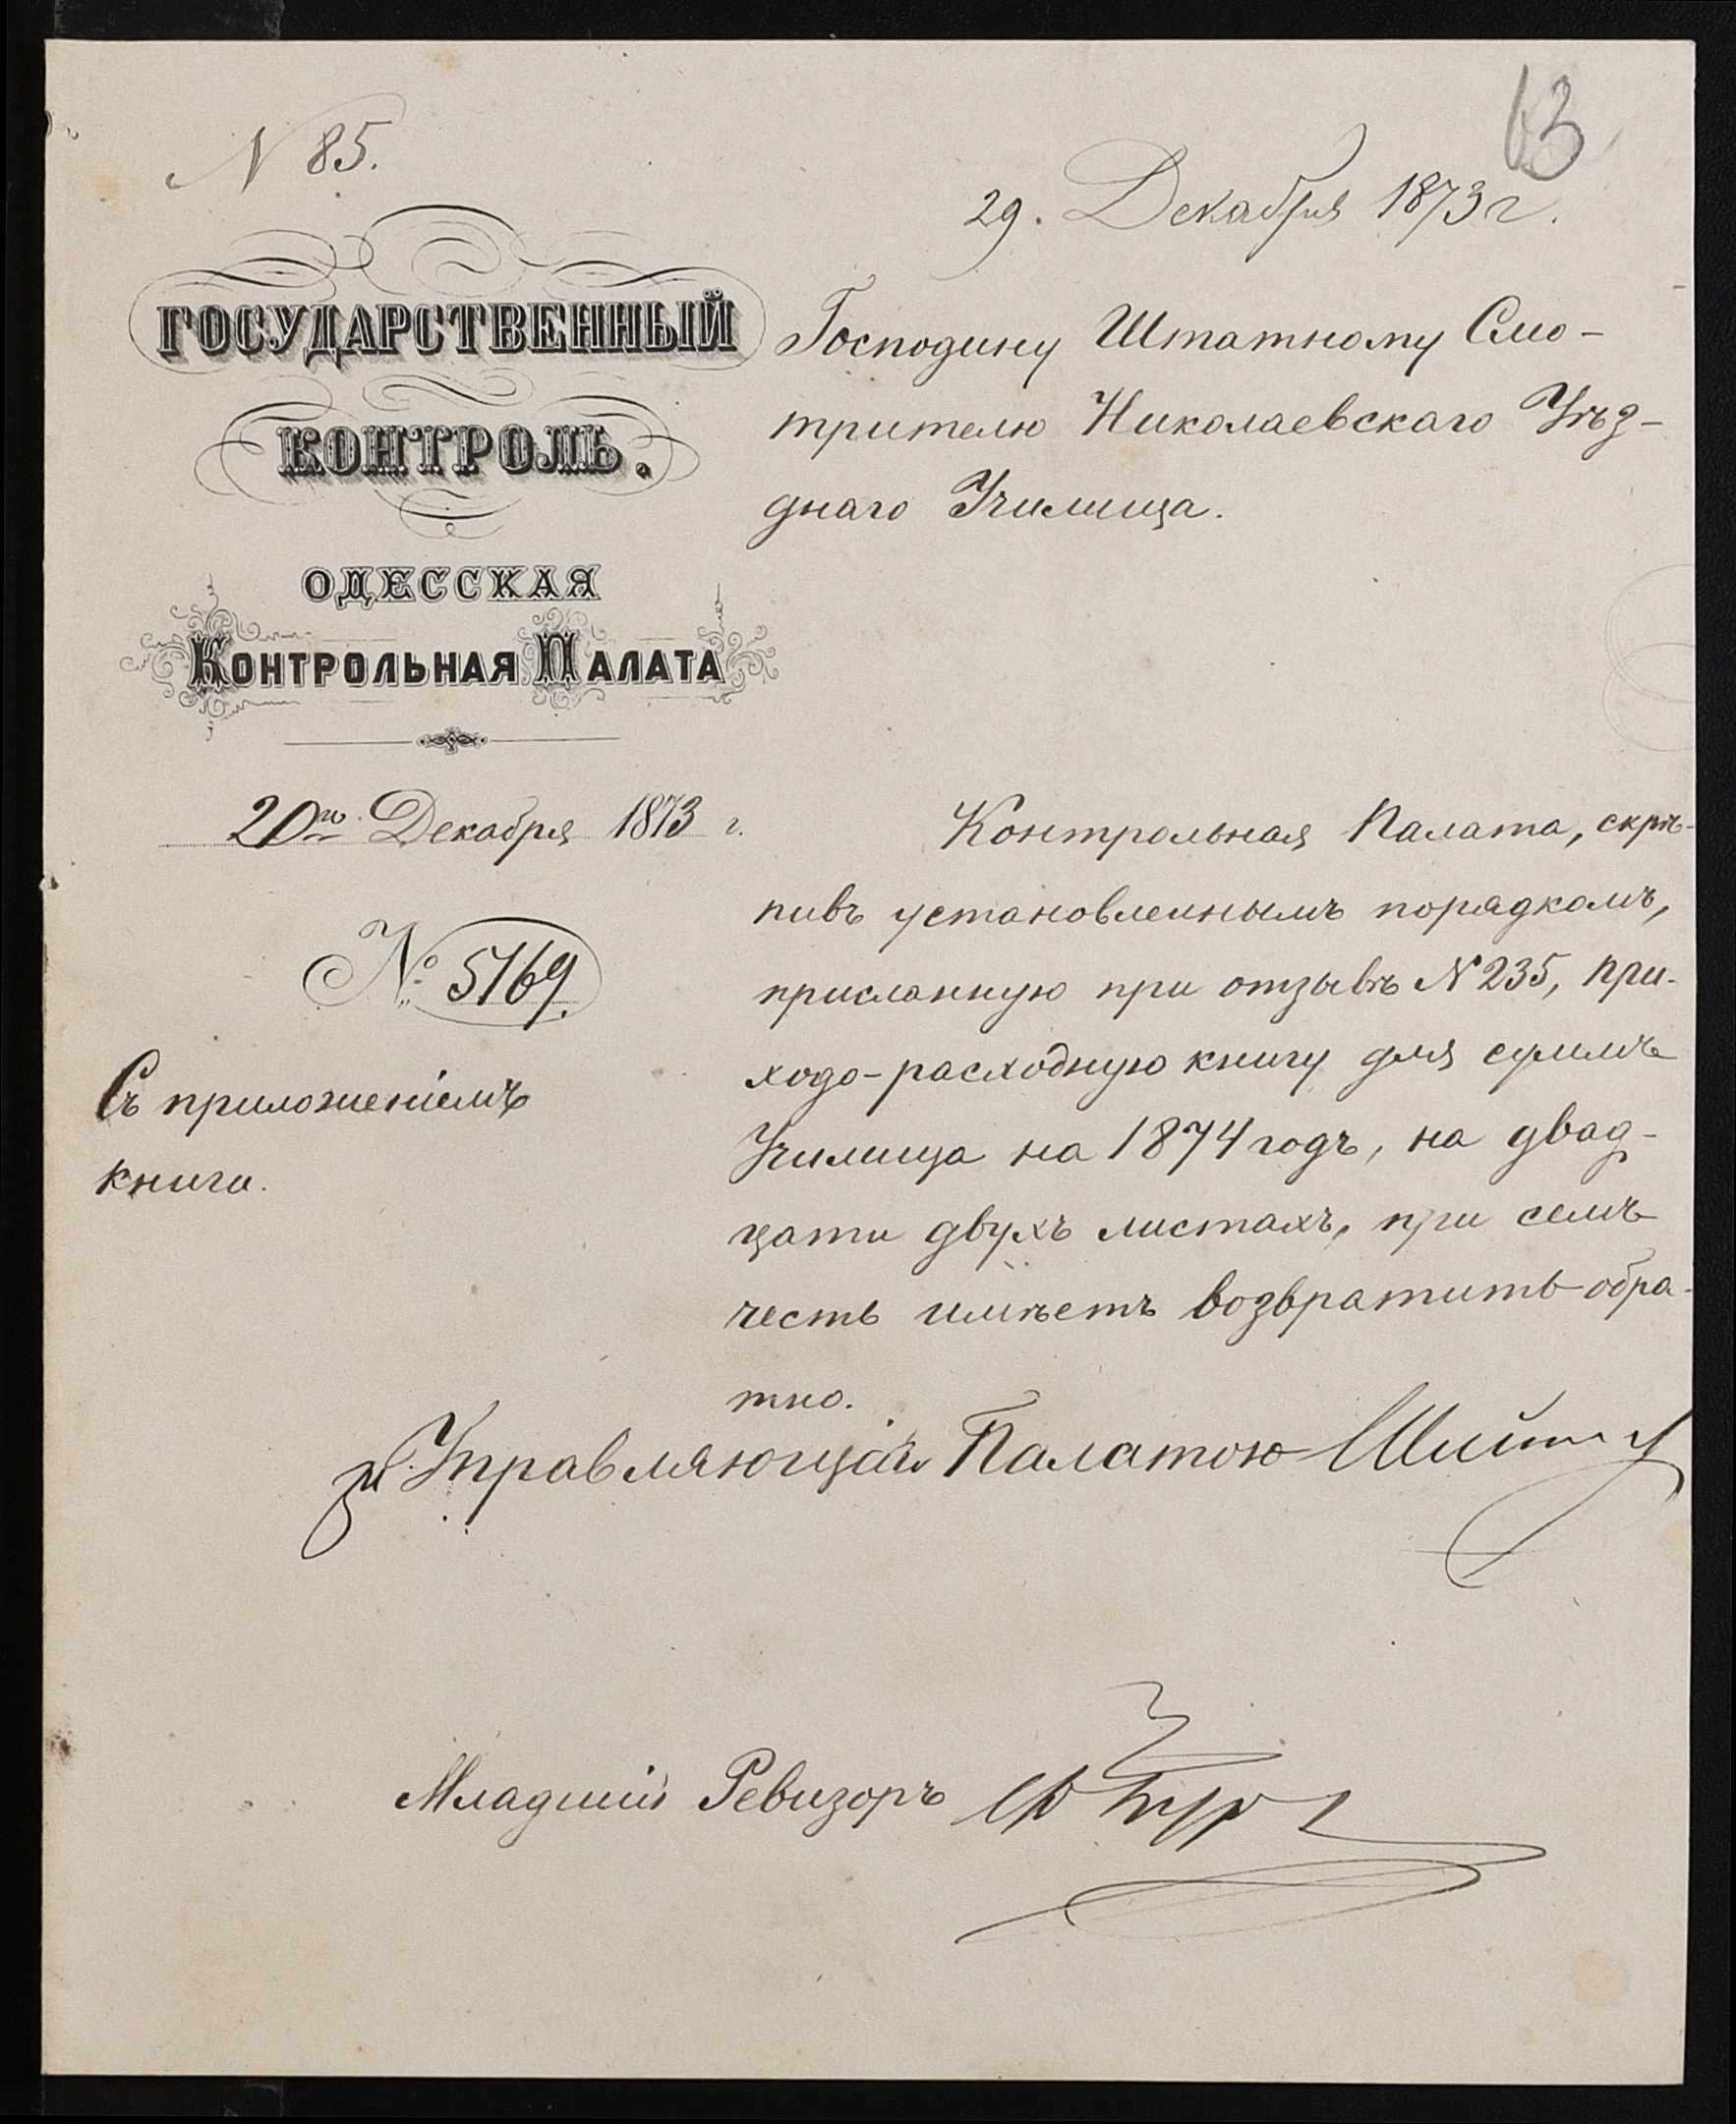 63
N 85.
29. Декабря 1873 г.
ГОСУДАРСТВЕННЫЙ
КОНТРОЛЬ.
ОДЕССКАЯ
КОНТРОЛЬНАЯ ПАЛАТА
20го Декабря 1873 г.
№ 5169.
Съ приложеніемъ
книги.
Господину Штатному Смо-
трителю Николаевскаго Уѣз-
днаго Училища.
Контрольная Палата, скрѣ-
пивъ установленнымъ порядкомъ,
присланную при отзывѣ N 235, при-
ходо-расходную книгу для суммъ
Училища на 1874 годъ, на двад-
цати двухъ листахъ, при семъ
честь имѣетъ возвратить обра-
тно.
Управляющій Палатою
Младшій Ревизоръ